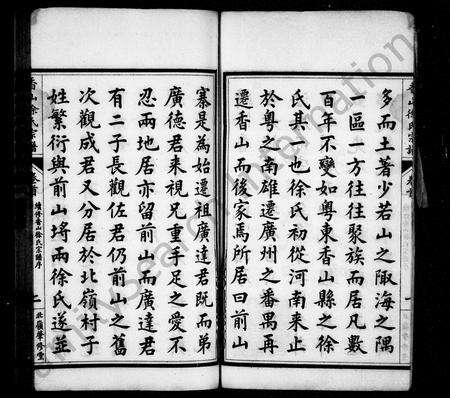 多而土著少若山之陬海之隅
一區一方往往聚族而居凡數
百年不變如粤東香山縣之徐
氏其一也徐氏初從河南來止
於粤之南雄遷廣州之番禺再
遷香山而後家焉所居曰前山
寨是為始遷祖廣達君既而弟
廣德君來視兄重手足之愛不
忍兩地居亦留前山而廣達君
有二子長觀佐君仍前山之舊
次觀成君又分居於北嶺村子
姓繁衍與前山埒兩徐氏遂並
香山徐氏宗譜
卷首
續修香山徐氏宗譜序
二
北嶺肇修堂